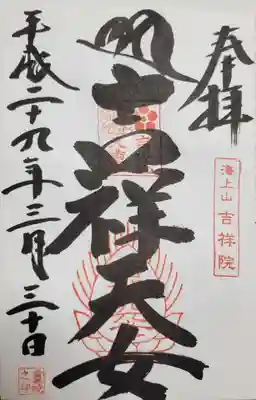 奉拝
海上山 吉祥院
吉祥天女
平成二十九年三月三十日